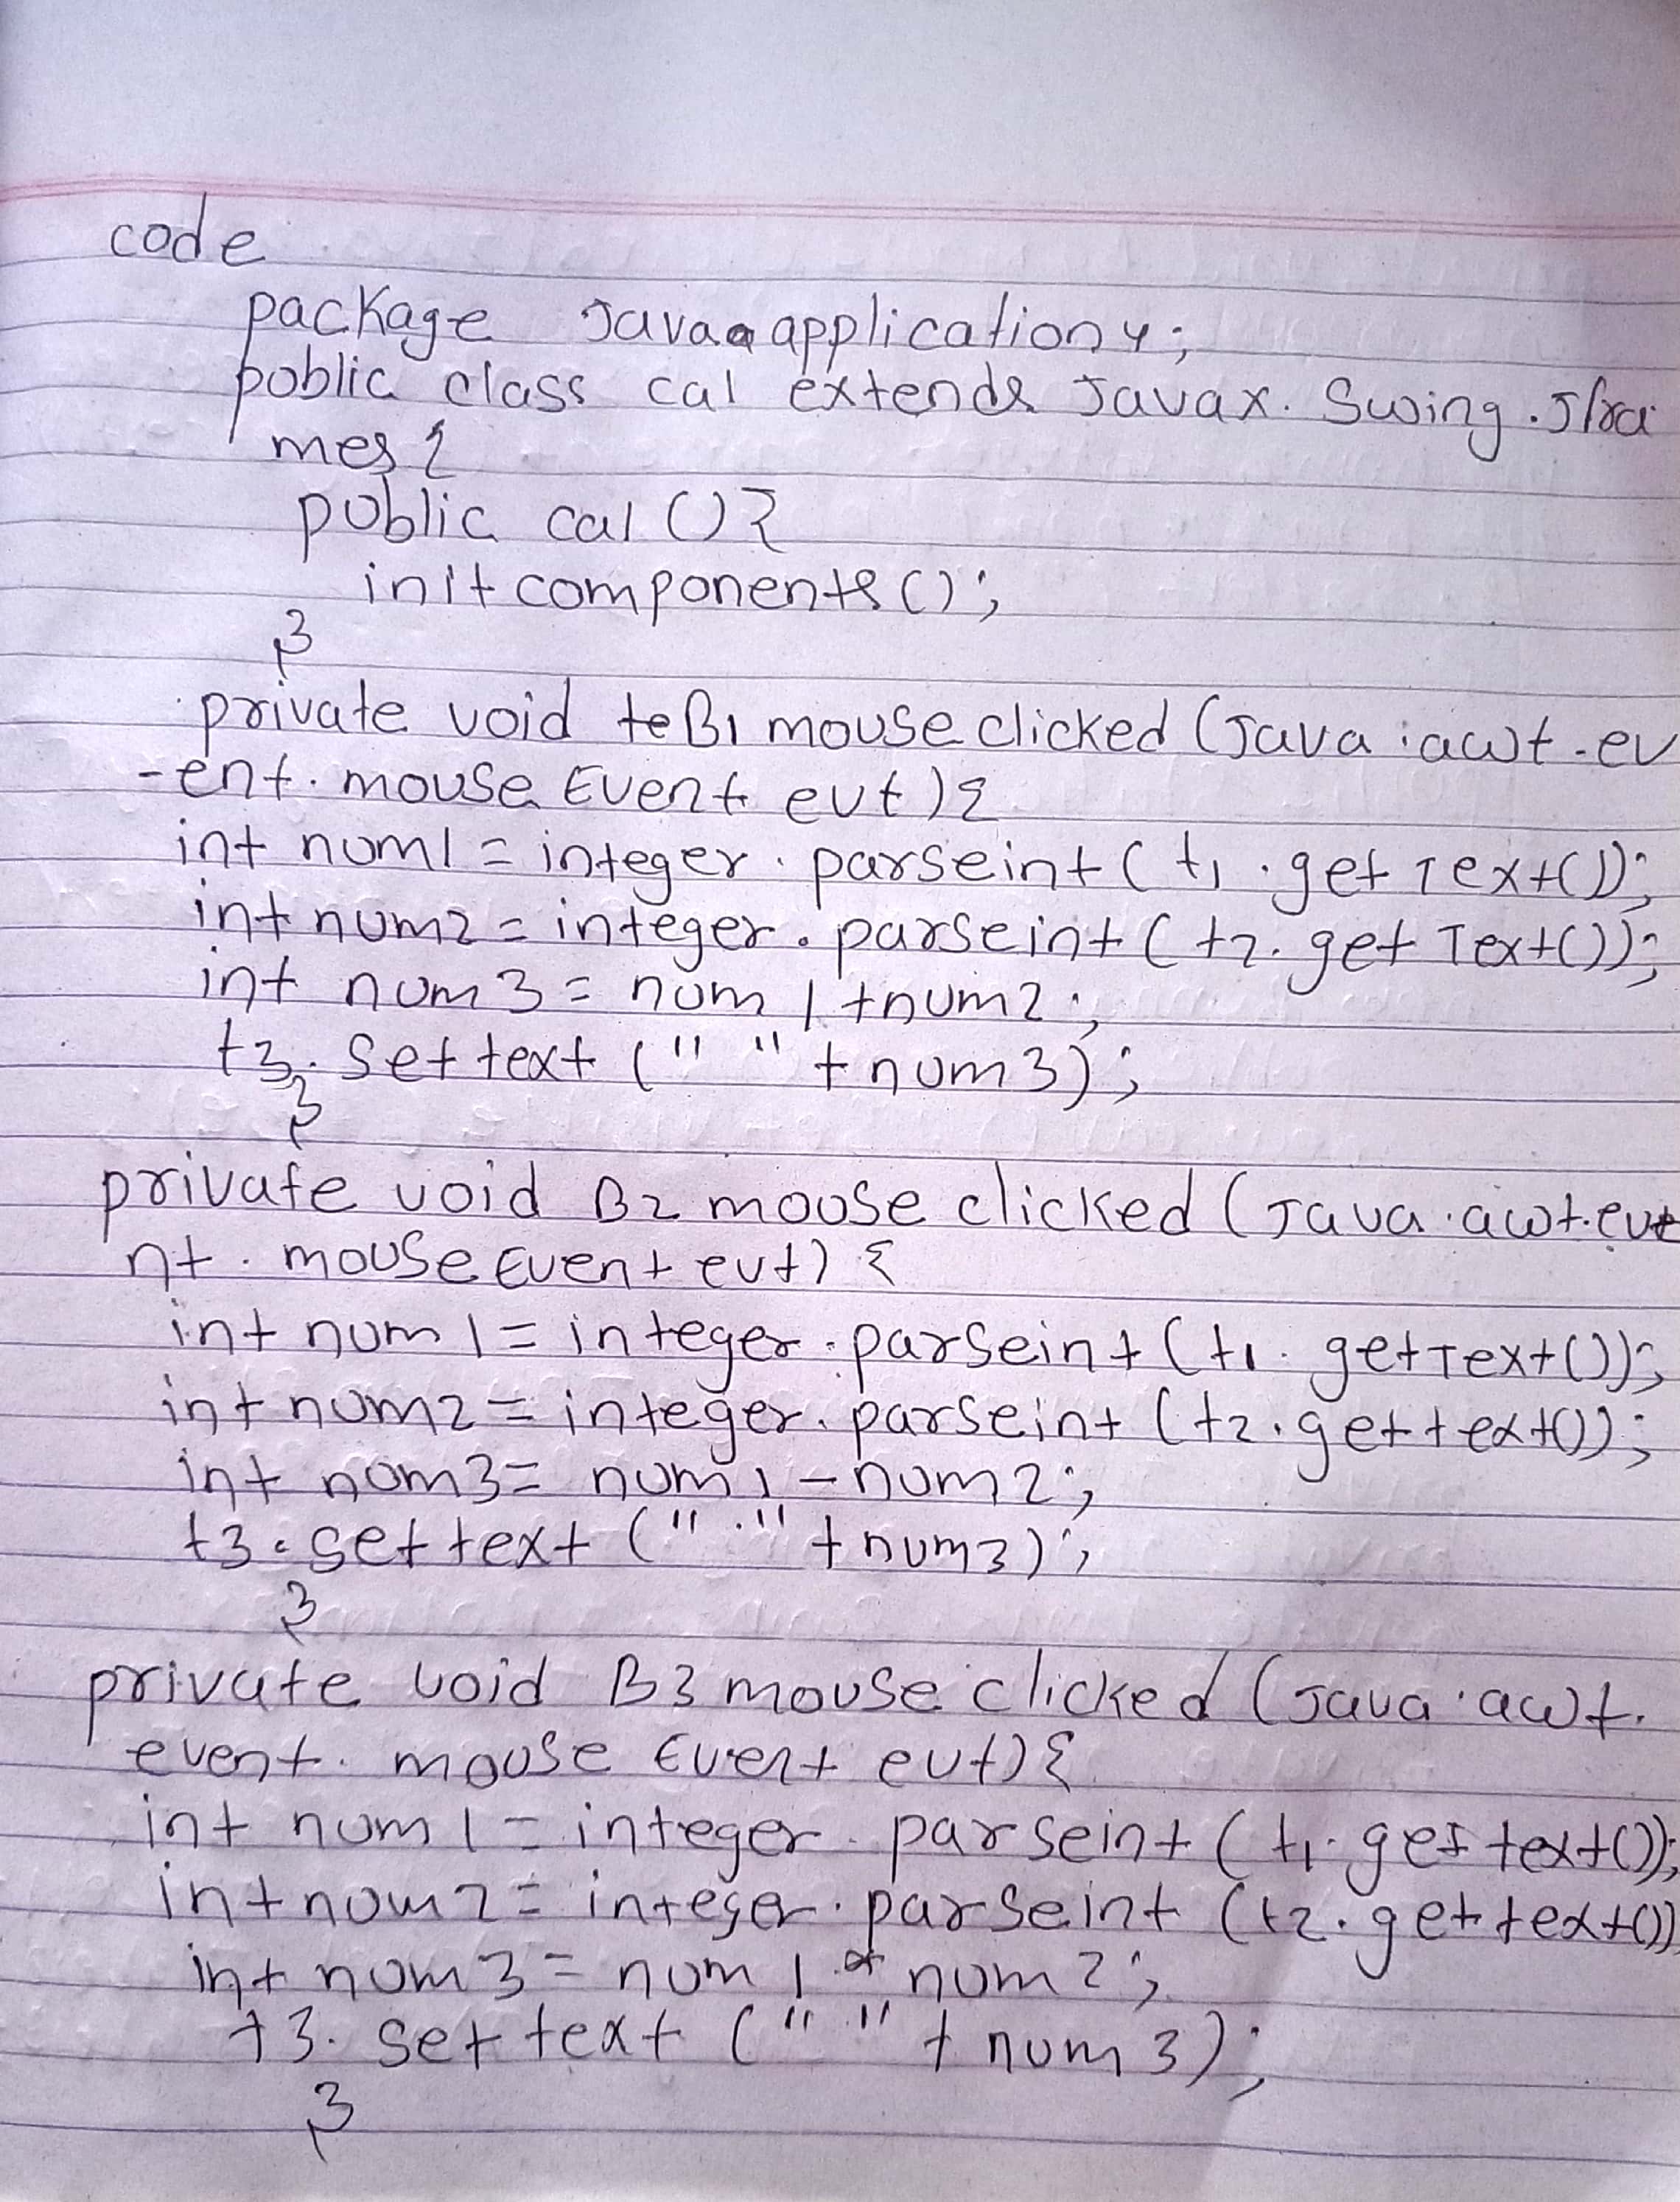 code
package Javaaapplication4;
public class cal extends Javax. Swing. Jfra
mes {
public cal () {
init components ();
}
private void teB1 mouse clicked (Java .awt.ev
-ent. mouse Event evt) {
int num1 = integer . parseint ( t1 . get Text());
int num2 = integer . parseint ( t2. get Text());
int num3 = num 1 + num2 ;
t3. Set text (" " + num3);
}
private void B2 mouse clicked (Java .awt.eve
nt . mouse Event evt) {
int num 1 = integer .parseint (t1. getText());
int num2 = integer. parseint (t2. get text());
int num3 = num1 - num2 ;
t3. set text (" " + num3) ;
}
private void B3 mouse clicked (Java .awt.
event. mouse Event evt) {
int num 1 = integer . parseint ( t1. get text());
int num2 = integer. parseint (t2. get text())
int num3 = num 1 * num2 ;
t3. set text (" " + num 3) ;
}